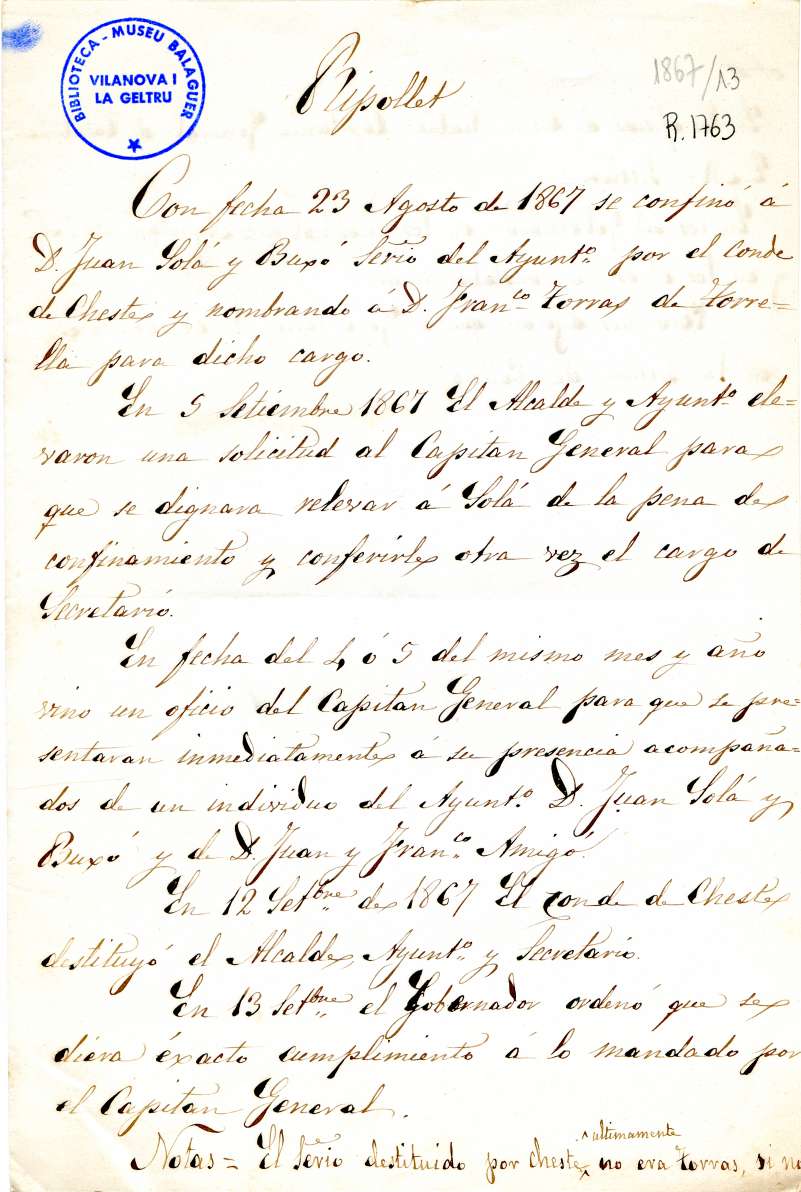 BIBLIOTECA - MUSEU BALAGUER
VILANOVA I
LA GELTRU
1867/13
R. 1763
Ripollet
Con fecha 23 Agosto de 1867 se confinó á
D. Juan Solá y Buxó Serio del Ayunto. por el conde
de Cheste y nombrando a D. Franco. Torras de Torre=
lla para dicho cargo.
En 5 Setiembre 1867 El Alcalde y Ayunto. ele=
varon una solicitud al Capitan General para
que se dignara relevar á Solá de la pena de
confinamiento y conferirle otra vez el cargo de
Secretario.
En fecha del 4 ó 5 del mismo mes y año
vino un oficio del Capitan General para que se pre=
sentaran inmediatamente á su presencia acompaña=
dos de un individuo del Ayunto. D. Juan Solá y
Buxó y de D. Juan y Franco. Amigó.
En 12 Setbre. de 1867 El conde de Cheste
destituyó el Alcalde, Ayunto. y Secretario.
En 13 Setbre. el Gobernador ordenó que se
diera éxacto cumplimiento á lo mandado por
el Capitan General.
Notas = El Serio destituido por Cheste ultimamente no era Torras, si no